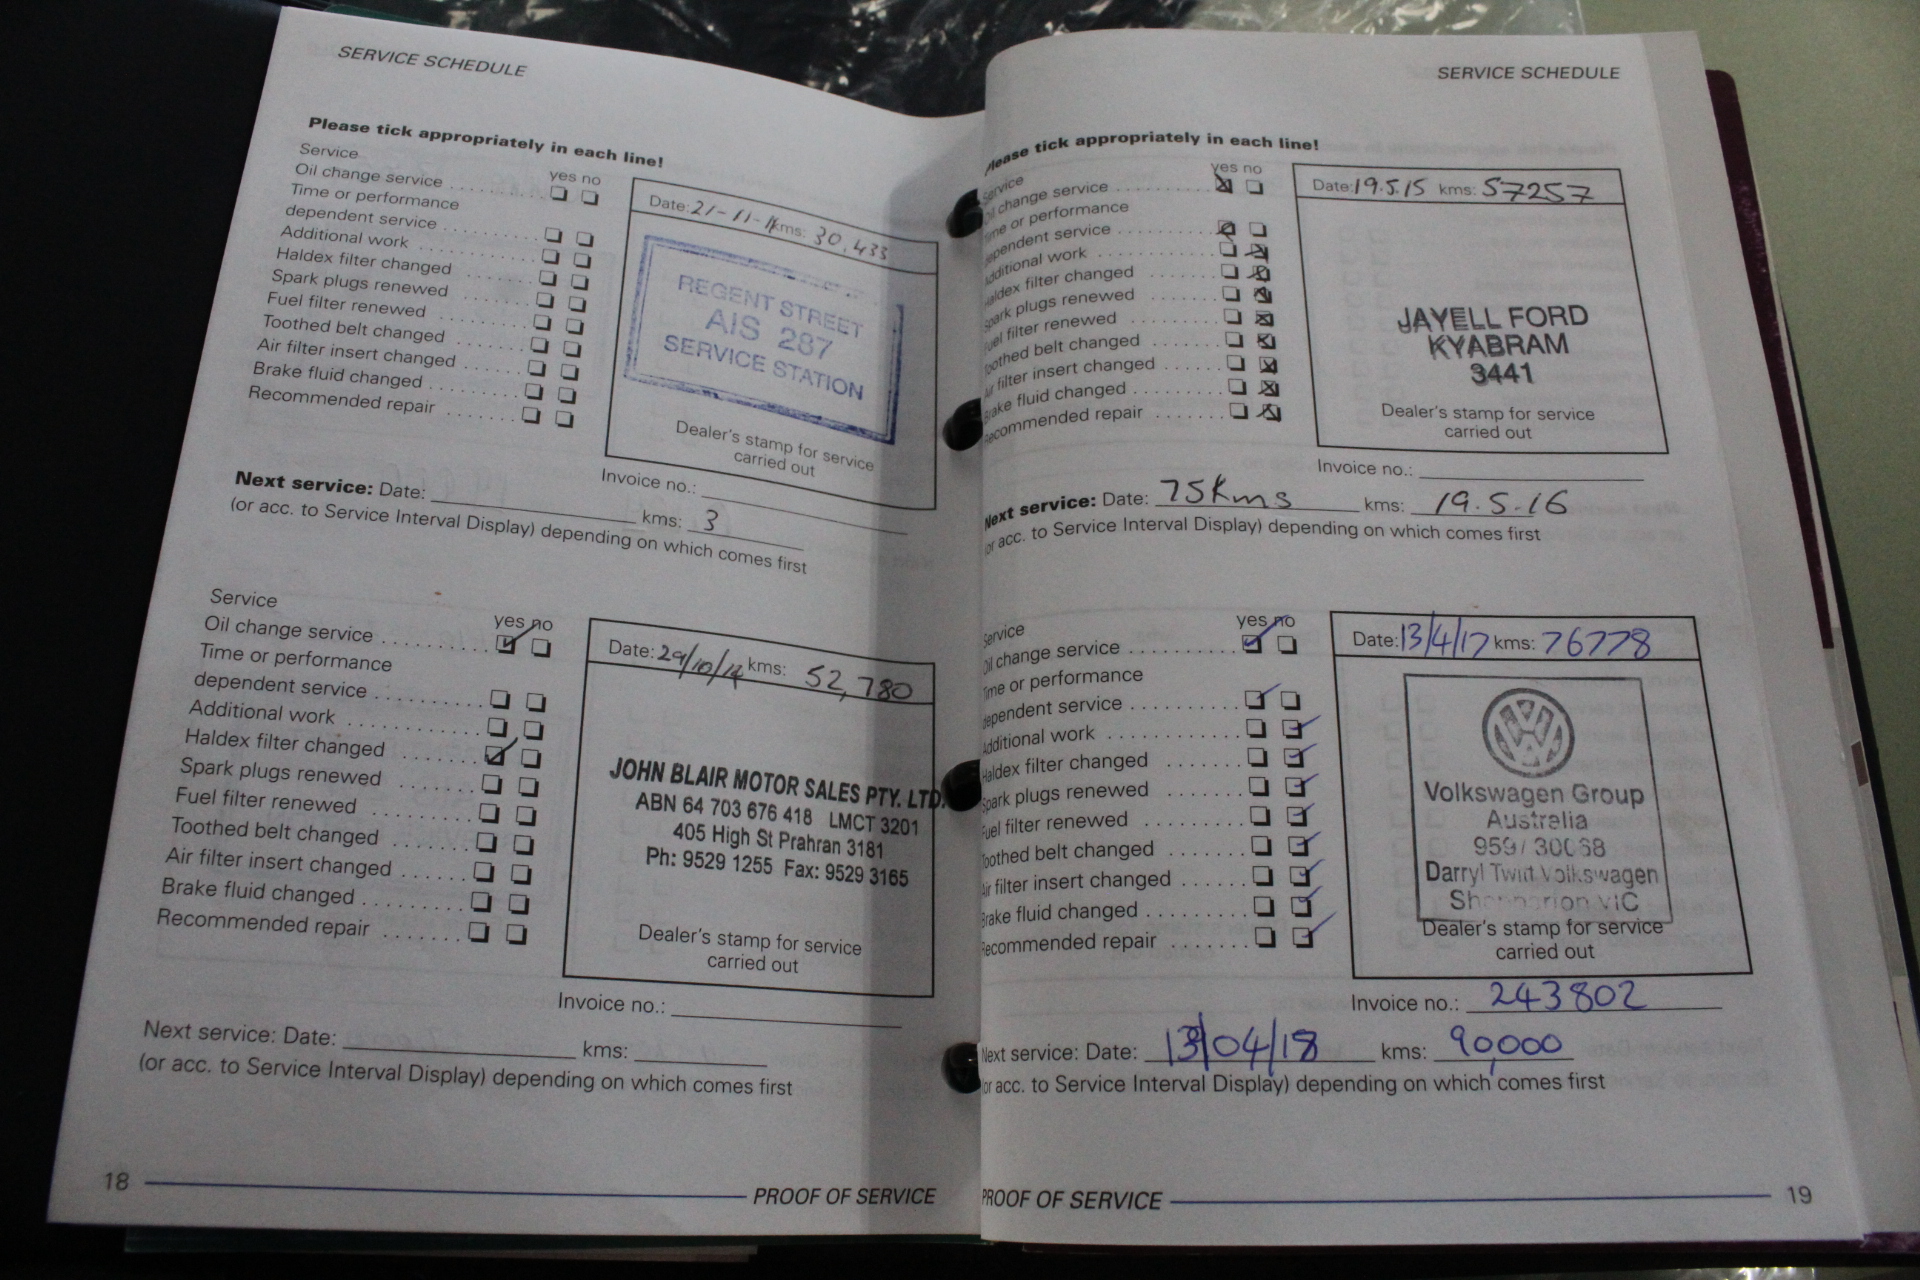 SERVICE SCHEDULE
Please tick appropriately in each line!
Service
yes no
Oil change service
Time or performance
dependent service
Additional work
Haldex filter changed
Spark plugs renewed
Fuel filter renewed
Toothed belt changed
Air filter insert changed
Brake fluid changed
Recommended repair
Date: 21-11-11 kms: 30,433
REGENT STREET
AIS 287
SERVICE STATION
Dealer's stamp for service
carried out
Invoice no.:
Next service: Date: kms: 3
(or acc. to Service Interval Display) depending on which comes first
Service
yes no
Oil change service
Time or performance
dependent service
Additional work
Haldex filter changed
Spark plugs renewed
Fuel filter renewed
Toothed belt changed
Air filter insert changed
Brake fluid changed
Recommended repair
Date: 29/10/14 kms: 52,780
JOHN BLAIR MOTOR SALES PTY. LTD.
ABN 64 703 676 418 LMCT 3201
405 High St Prahran 3181
Ph: 9529 1255 Fax: 9529 3165
Dealer's stamp for service
carried out
Invoice no.:
Next service: Date: kms:
(or acc. to Service Interval Display) depending on which comes first
18 PROOF OF SERVICE
SERVICE SCHEDULE
Please tick appropriately in each line!
Service
yes no
Oil change service
Time or performance
dependent service
Additional work
Haldex filter changed
Spark plugs renewed
Fuel filter renewed
Toothed belt changed
Air filter insert changed
Brake fluid changed
Recommended repair
Date: 19.5.15 kms: 57257
JAYELL FORD
KYABRAM
3441
Dealer's stamp for service
carried out
Invoice no.:
Next service: Date: 75kms kms: 19.5.16
or acc. to Service Interval Display) depending on which comes first
Service
yes no
Oil change service
Time or performance
dependent service
Additional work
Haldex filter changed
Spark plugs renewed
Fuel filter renewed
Toothed belt changed
Air filter insert changed
Brake fluid changed
Recommended repair
Date: 13/4/17 kms: 76778
Volkswagen Group
Australia
Darryl Volkswagen
VIC
Dealer's stamp for service
carried out
Invoice no.: 243802
Next service: Date: 13/04/18 kms: 90,000
or acc. to Service Interval Display) depending on which comes first
PROOF OF SERVICE 19